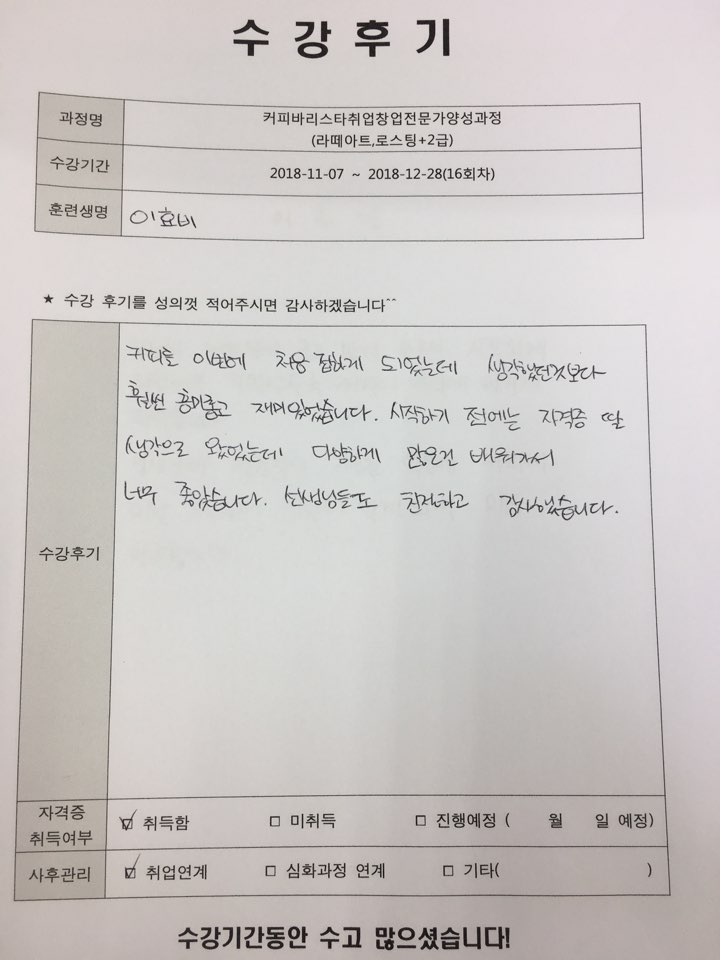 수 강 후 기
과정명 커피바리스타취업창업전문가양성과정
(라떼아트,로스팅+2급)
수강기간 2018-11-07 ~ 2018-12-28(16회차)
훈련생명 이효비
★ 수강 후기를 성의껏 적어주시면 감사하겠습니다^^
커피를 이번에 처음 접하게 되었는데 생각했던것보다
훨씬 흥미롭고 재미있었습니다. 시작하기 전에는 자격증 딸
생각으로 왔었는데 다양하게 많은걸 배워가서
너무 좋았습니다. 선생님들도 친절하고 감사했습니다.
수강후기
자격증
취득여부 ☑ 취득함 □ 미취득 □ 진행예정 ( 월 일 예정)
사후관리 ☑ 취업연계 □ 심화과정 연계 □ 기타( )
수강기간동안 수고 많으셨습니다!